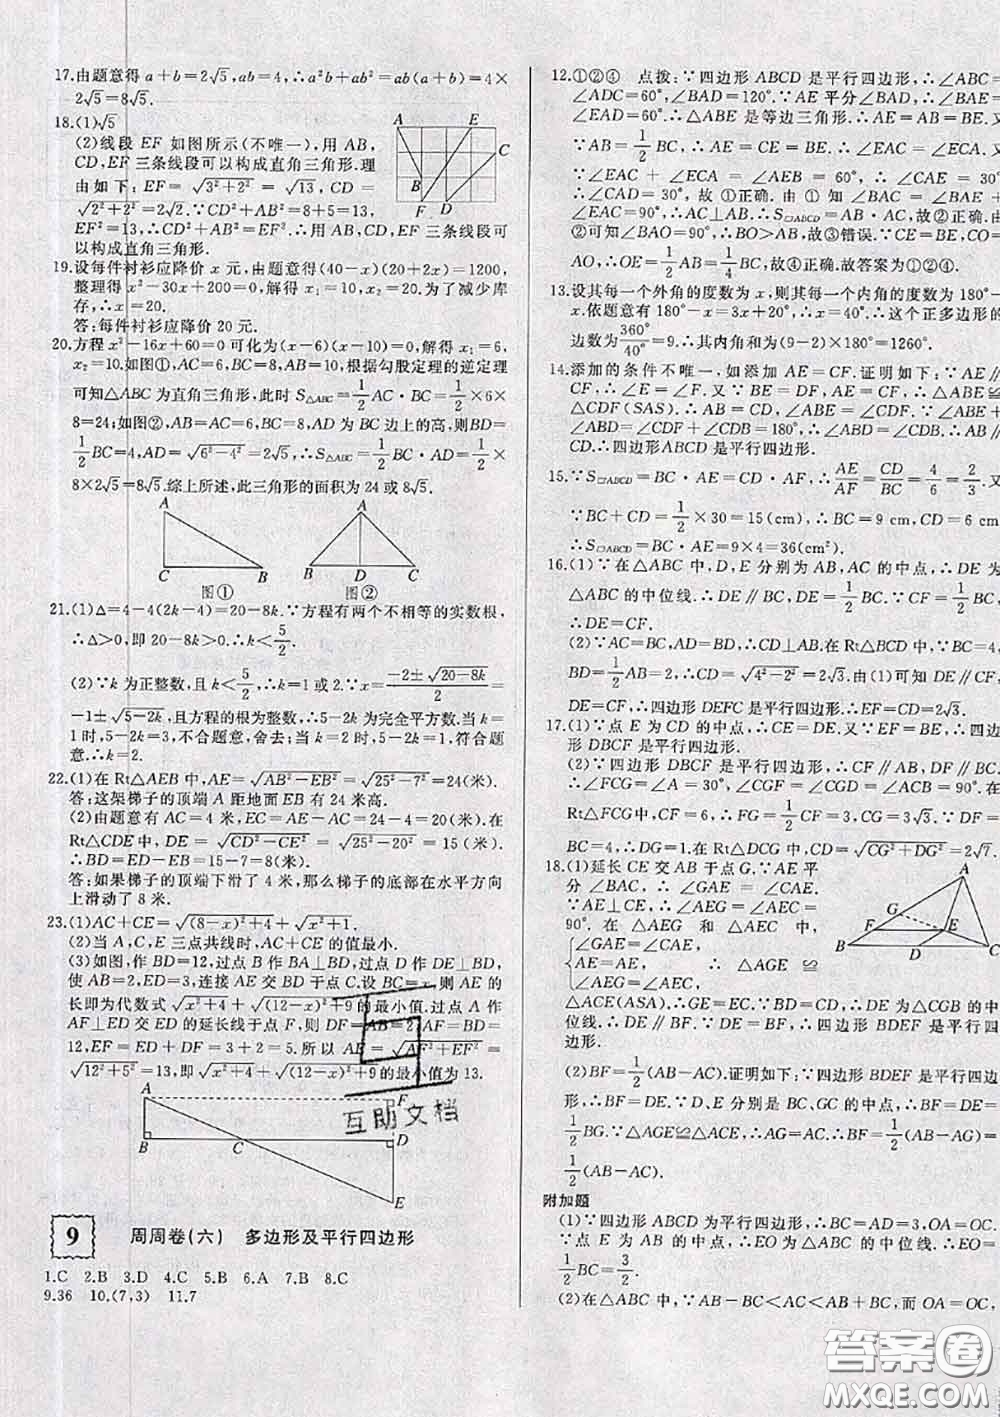 17.由题意得 a+b=2√5,ab=4,∴a²b+ab²=ab(a+b)=4×
2√5=8√5.
18.(1)√5
(2)线段 EF 如图所示(不唯一),用 AB,
CD,EF 三条线段可以构成直角三角形.理
由如下:EF=√(3²+2²)=√13,CD=
√(2²+2²)=2√2.∵CD²+AB²=8+5=13,
EF²=13,∴CD²+AB²=EF².∴用 AB,CD,EF 三条线段可
以构成直角三角形.
A E C B F D
19.设每件衬衫应降价 x 元,由题意得(40-x)(20+2x)=1200,
整理得 x²-30x+200=0,解得 x₁=10,x₂=20.为了减少库
存,∴x=20.
答:每件衬衫应降价 20 元.
20.方程 x²-16x+60=0 可化为(x-6)(x-10)=0,解得 x₁=6,
x₂=10.如图①,AC=6,BC=8,AB=10,根据勾股定理的逆定理
可知△ABC 为直角三角形,此时 S△ABC=1/2 AC·BC=1/2×6×
8=24;如图②,AB=AC=6,BC=8,AD 为 BC 边上的高,则BD=
1/2 BC=4,AD=√(6²-4²)=2√5,∴S△ABC=1/2 BC·AD=1/2×
8×2√5=8√5.综上所述,此三角形的面积为 24 或 8√5.
A C B 图①
A B D C 图②
21.(1)△=4-4(2k-4)=20-8k.∵方程有两个不相等的实数根,
∴△>0,即 20-8k>0,∴k<5/2.
(2)∵k 为正整数,且 k<5/2,∴k=1 或 2.∵x=(-2±√(20-8k))/2=
-1±√(5-2k),且方程的根为整数,∴5-2k 为完全平方数.当 k=
1时,5-2k=3,不合题意,舍去;当 k=2时,5-2k=1,符合题
意.∴k=2.
22.(1)在 Rt△AEB 中,AE=√(AB²-EB²)=√(25²-7²)=24(米).
答:这架梯子的顶端 A 距地面 EB 有 24 米高.
(2)由题意有 AC=4 米,EC=AE-AC=24-4=20(米).在
Rt△CDE 中,DE=√(CD²-CE²)=√(25²-20²)=15(米).
∴BD=ED-EB=15-7=8(米).
答:如果梯子的顶端下滑了 4 米,那么梯子的底部在水平方向
上滑动了 8 米.
23.(1)AC+CE=√((8-x)²+4)+√(x²+1).
(2)当 A,C,E 三点共线时,AC+CE 的值最小.
(3)如图,作 BD=12,过点 B 作 BA⊥BD,过点 D 作 DE⊥BD,
使 AB=2,ED=3,连接 AE 交 BD 于点 C.设 BC=x,则 AE 的
长即为代数式 √(x²+4)+√((12-x)²+9)的最小值.过点 A 作
AF⊥ED 交 ED 的延长线于点 F,则 DF=AB=2,AF=BD=
12,EF=ED+DF=3+2=5.所以 AE=√(AF²+EF²)=
√(12²+5²)=13,即 √(x²+4)+√((12-x)²+9)的最小值为 13.
A F B C D E
互助文档
9 周周卷(六) 多边形及平行四边形
1.C 2.B 3.D 4.C 5.B 6.A 7.B 8.C
9.36 10.(7,3) 11.7
12.①②④ 点拨:∵四边形 ABCD 是平行四边形,∴∠ABC=
∠ADC=60°,∠BAD=120°.∵AE 平分∠BAD,∴∠BAE=
∠EAD=60°.∴△ABE 是等边三角形.∴AE=AB=BE.
∵AB=1/2 BC,∴AE=CE=BE.∴∠EAC=∠ECA.
∵∠EAC+∠ECA=∠AEB=60°,∴∠CAE=30°.
∴∠CAD=30°,故①正确.由①知∠BAC=∠BAE+
∠EAC=90°,∴AC⊥AB.∴S▱ABCD=AB·AC,故②正确.由
②可知∠BAO=90°,∴BO>AB,故③错误.∵CE=BE,CO=
AO,∴OE=1/2 AB=1/4 BC,故④正确.故答案为①②④.
13.设其每一个外角的度数为 x,则其每一个内角的度数为 180°-
x.依题意有 180°-x=3x+20°,∴x=40°,∴这个正多边形的
边数为 360°/40°=9.∴其内角和为(9-2)×180°=1260°.
14.添加的条件不唯一,如添加 AE=CF.证明如下:∵AE∥
CF,∴∠E=∠F.又∵BE=DF,AE=CF,∴△ABE≌
△CDF(SAS).∴AB=CD,∠ABE=∠CDF.∵∠ABE+
∠ABD=∠CDF+∠CDB=180°,∴∠ABD=∠CDB.∴AB∥
CD.∴四边形ABCD 是平行四边形.
15.∵S▱ABCD=BC·AE=CD·AF,∴AE/AF=CD/BC=4/6=2/3.又
∵BC+CD=1/2×30=15(cm),∴BC=9 cm,CD=6 cm
∴S▱ABCD=BC·AE=9×4=36(cm²).
16.(1)∵在△ABC 中,D,E 分别为 AB,AC 的中点,∴DE 为
△ABC 的中位线.∴DE=1/2 BC.∵CF=1/2 BC,
∴DE=CF.
(2)∵AC=BC,AD=BD,∴CD⊥AB.在 Rt△BCD 中,BC=4,
BD=1/2 AB=2,∴CD=√(4²-2²)=2√3.由(1)可知 DE∥CF,
∴四边形 DEFC 是平行四边形.∴EF=CD=2√3.
17.(1)∵点 E 为 CD 的中点,∴CE=DE.又∵EF=BE,∴四边
形 DBCF 是平行四边形.
(2)∵四边形 DBCF 是平行四边形,∴CF∥AB,DF∥BC.
∴∠FCG=∠A=30°,∠CGF=∠CGD=∠ACB=90°.在
Rt△FCG 中,CF=6,∴FG=1/2 CF=3,CG=3√3.∵DF=
BC=4,∴DG=1.在 Rt△DCG 中,CD=√(CG²+DG²)=2√7.
18.(1)延长 CE 交 AB 于点 G.∵AE 平
分∠BAC,∴∠GAE=∠CAE.
∵AE⊥CE,∴∠AEG=∠AEC=
90°.在△AEG 和△AEC 中,
∠GAE=∠CAE,
AE=AE, ∴△AGE≌
∠AEG=∠AEC,
△ACE(ASA).∴GE=EC.∵D=CD,∴DE 为△CGB 的中
位线.∴DE∥BF.∵DE=BF,∴四边形 BDEF 是平行
四边形.
A G F E B D C
(2)BF=1/2(AB-AC).证明如下:∵四边形 BDEF 是平行四边
形,∴BF=DE.∵D、E 分别是 BC、GC 的中点,∴BF=DE=
1/2 BG.∵△AGE≌△ACE,∴AG=AC.∴BF=1/2(AB-AG)=
1/2(AB-AC).
附加题
(1)∵四边形 ABCD 为平行四边形,BC=AD=3,OA=OC.
∵点 E 为 AB 的中点,∴EO 为△ABC 的中位线.∴EO=
1/2 BC=3/2.
(2)在△ABC 中,∵AB-BC<AC<AB+BC,而 OA=OC,
答案圈
MXQE.COM